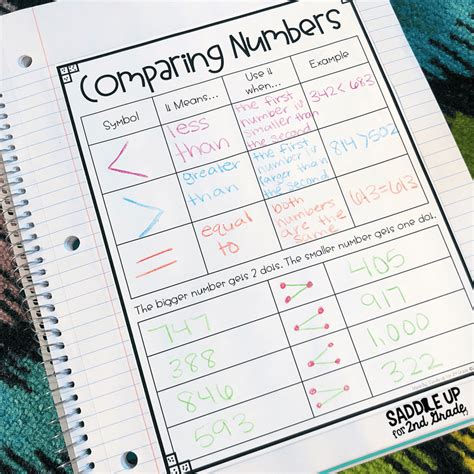 Comparing Numbers
Symbol It Means... Use it when... Example
< less than the first number is smaller than the second 342<683
> greater than the first number is larger than the second 814>502
= equal to both numbers are the same 613=613
The bigger number gets 2 dots. The smaller number gets one dot.
747 > 405
388 < 917
846 < 1,000
593 > 322
SADDLE UP
for 2nd Grade